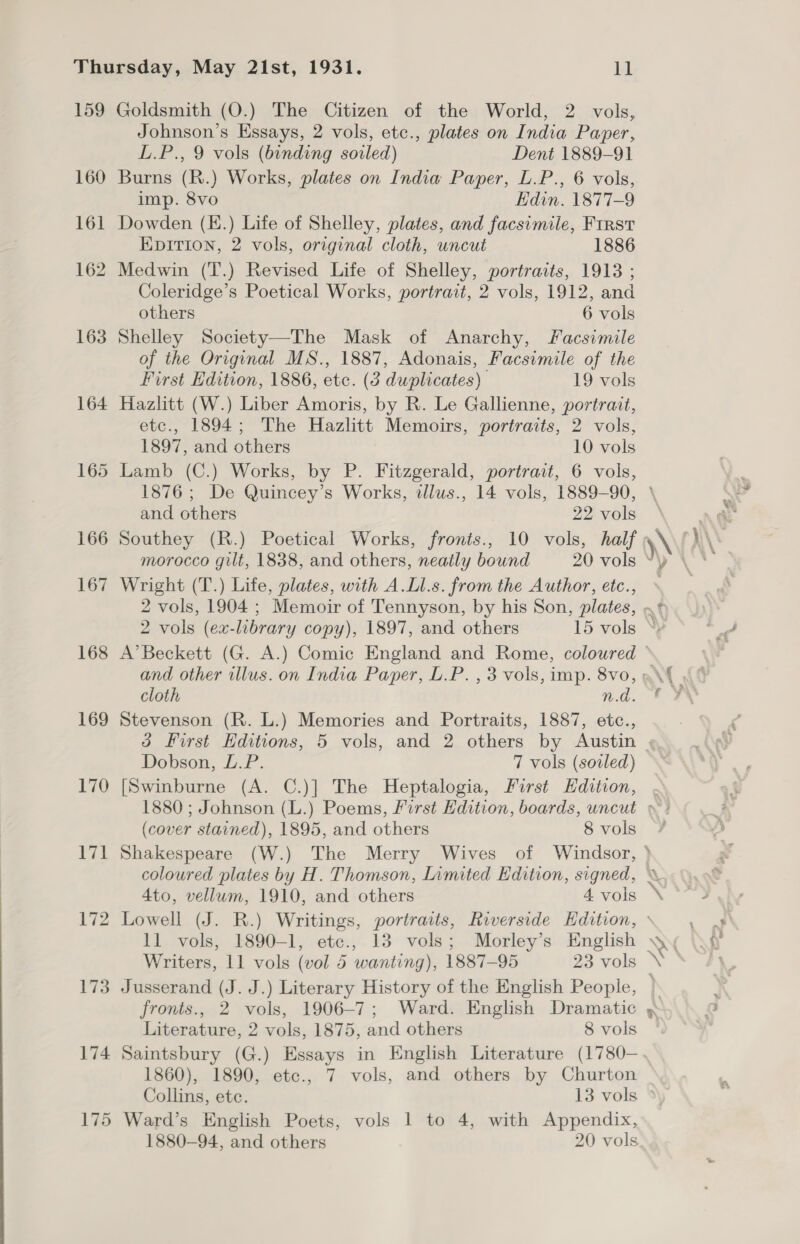 Thursday, May 21st, 1931. 11
159 Goldsmith (O.) The Citizen of the World, 2 vols,
Johnson's Essays, 2 vols, etc., plates on India Paper,
L.P., 9 vols (binding soiled) Dent 1889–91
160 Burns (R.) Works, plates on India Paper, L.P., 6 vols,
imp. 8vo Edin. 1877–9
161 Dowden (E.) Life of Shelley, plates, and facsimile, First
Edition, 2 vols, original cloth, uncut 1886
162 Medwin (T.) Revised Life of Shelley, portraits, 1913 ;
Coleridge's Poetical Works, portrait, 2 vols, 1912, and
others 6 vols
163 Shelley Society—The Mask of Anarchy, Facsimile
of the Original MS., 1887, Adonais, Facsimile of the
First Edition, 1886, etc. (3 duplicates) 19 vols
164 Hazlitt (W.) Liber Amoris, by R. Le Gallienne, portrait,
etc., 1894 ; The Hazlitt Memoirs, portraits, 2 vols,
1897, and others 10 vols
165 Lamb (C.) Works, by P. Fitzgerald, portrait, 6 vols,
1876 ; De Quincey's Works, illus., 14 vols, 1889–90,
and others 22 vols
166 Southey (R.) Poetical Works, fronts., 10 vols, half
morocco gilt, 1838, and others, neatly bound 20 vols
167 Wright (T.) Life, plates, with A.Ll.s. from the Author, etc.,
2 vols, 1904 ; Memoir of Tennyson, by his Son, plates,
2 vols (ex-library copy), 1897, and others 15 vols
168 A'Beckett (G. A.) Comic England and Rome, coloured
and other illus. on India Paper, L.P. , 3 vols, imp. 8vo,
cloth n.d.
169 Stevenson (R. L.) Memories and Portraits, 1887, etc.,
3 First Editions, 5 vols, and 2 others by Austin
Dobson, L.P. 7 vols (soiled)
170 [Swinburne (A. C.)] The Heptalogia, First Edition,
1880 ; Johnson (L.) Poems, First Edition, boards, uncut
(cover stained), 1895, and others 8 vols
171 Shakespeare (W.) The Merry Wives of Windsor,
coloured plates by H. Thomson, Limited Edition, signed,
4to, vellum, 1910, and others 4 vols
172 Lowell (J. R.) Writings, portraits, Riverside Edition,
11 vols, 1890–1, etc., 13 vols ; Morley's English
Writers, 11 vols (vol 5 wanting), 1887–95 23 vols
173 Jusserand (J. J.) Literary History of the English People,
fronts., 2 vols, 1906–7 ; Ward. English Dramatic
Literature, 2 vols, 1875, and others 8 vols
174 Saintsbury (G.) Essays in English Literature (1780–
1860), 1890, etc., 7 vols, and others by Churton
Collins, etc. 13 vols
175 Ward's English Poets, vols 1 to 4, with Appendix,
1880–94, and others 20 vols